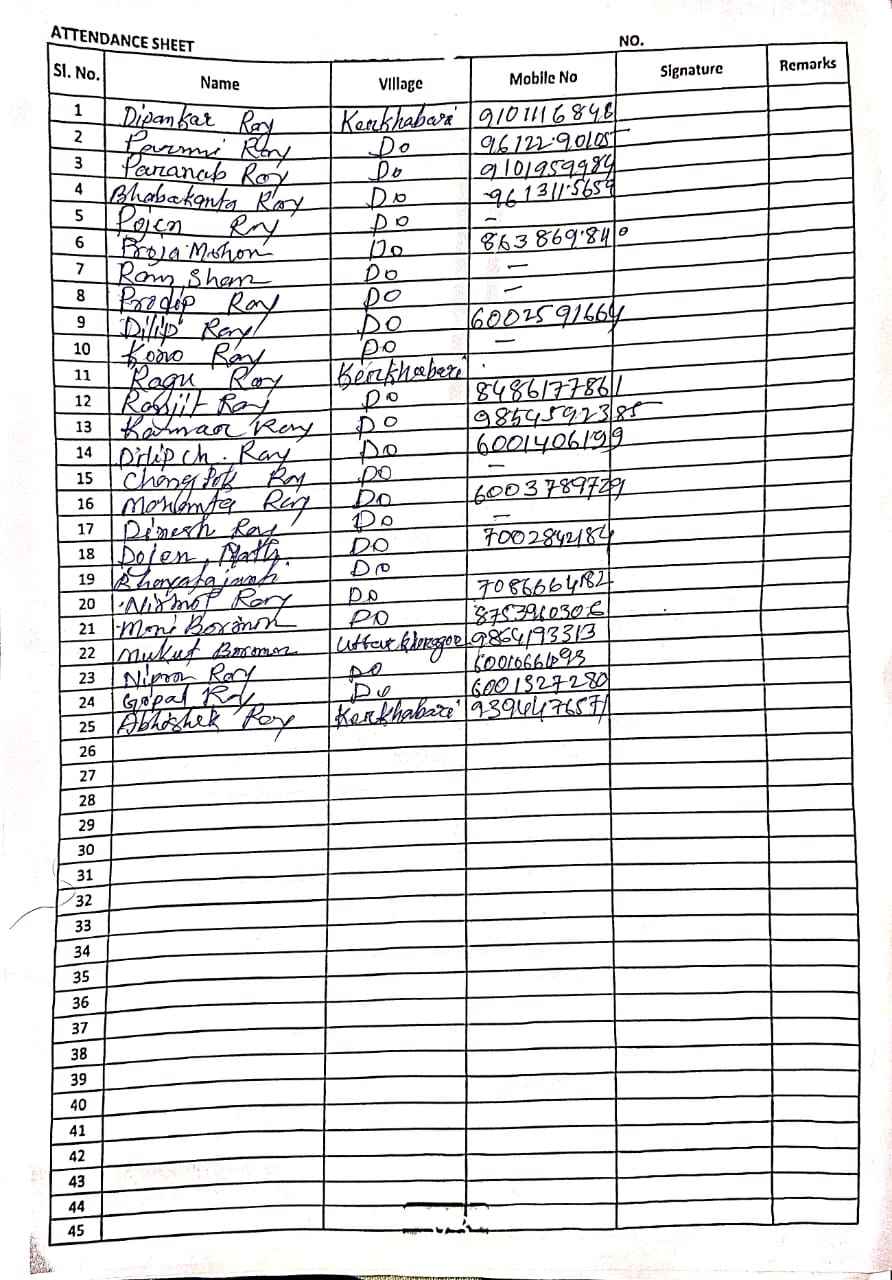 ATTENDANCE SHEET NO.
Sl. No. Name Village Mobile No Signature Remarks
1 Dipankar Ray Kerkhabari 9101116846
2 Ray Do 96122.90105
3 Paranab Ray Do 9101959984
4 Bhabakanta Ray Do 961311.5659
5 Pojen Ray Do -
6 Do 863869.840
7 Ram Sham Do -
8 Prodip Ray Do -
9 Dilip Ray Do 6002591664
10 Kono Ray Do -
11 Ragu Ray Kerkhabari
12 Ranjit Ray Do 8486177861
13 Ray Do 9854592385
14 Dilip ch. Ray Do 6001406199
15 Ray Do -
16 Mohanta Ray Do 6003789729
17 Dinesh Ray Do -
18 Dojen Do 7002842184
19 Do
20 Nirmol Ray Do 7086664182
21 Moni Borman Do
22 Mukut Borman 9864193313
23 Nipon Ray Do
24 Gopal Ray Do 6001327280
25 Abhishek Ray Kerkhabari 9394476571
26
27
28
29
30
31
32
33
34
35
36
37
38
39
40
41
42
43
44
45